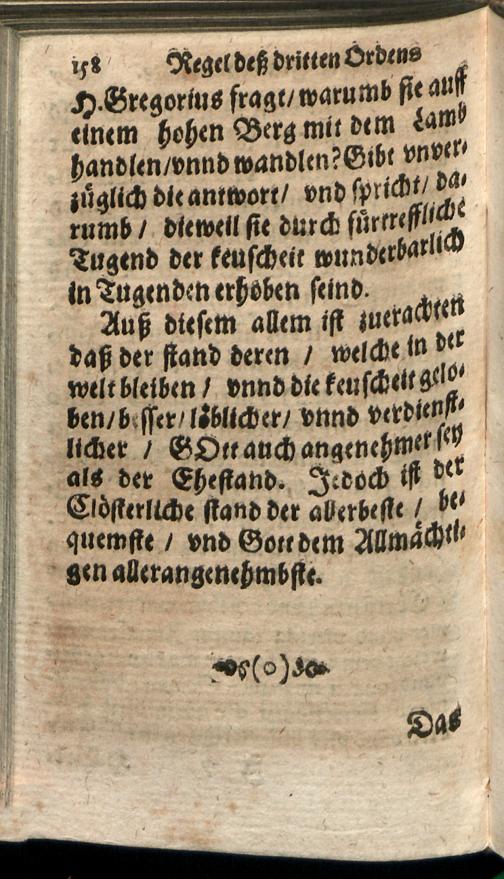 158 Regel deß dritten Ordens
H. Gregorius fragt/ warumb sie auff
einem hohen Berg mit dem Lamb
handlen/vnnd wandlen? Gibt vnver-
züglich die antwort/ vnd spricht/ da-
rumb / dieweil sie durch fürtreffliche
Tugend der keuscheit wunderbarlich
in Tugenden erhoben seind.
Auß diesem allem ist zuerachten
daß der stand deren / welche in der
welt bleiben / vnnd die keuscheit gelo-
ben/ besser/ löblicher/ vnnd verdienst-
licher / GOtt auch angenehmer sey
als der Ehestand. Jedoch ist der
Clösterliche stand der allerbeste / be-
quemste / vnd Gott dem Allmächti-
gen allerangenehmbste.
(o)
Das